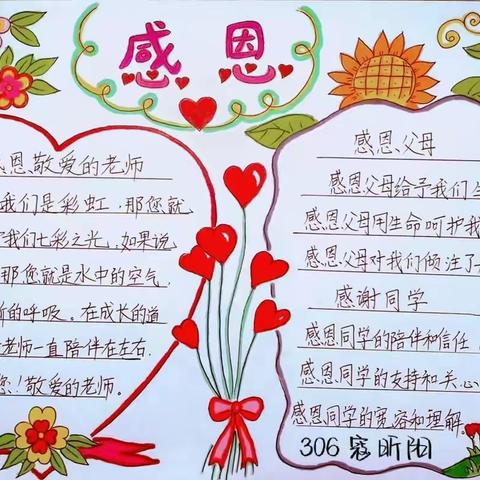 感恩
感恩敬爱的老师
我们是彩虹，那您就
我们七彩之光，如果说
那您就是水中的空气，
的呼吸。在成长的道
老师一直陪伴在左右.
您！敬爱的老师。
感恩父母
感恩父母给予我们
感恩父母用生命呵护我
感恩父母对我们倾注了
感谢同学
感恩同学的陪伴和信任
感恩同学的支持和关心
感恩同学的宽容和理解。
306 寇昕阳